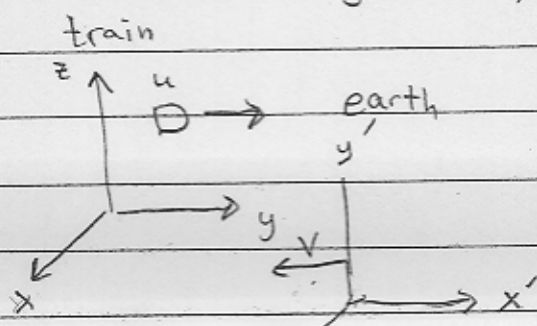 train
z
u
earth
y'
y
v
x
x'